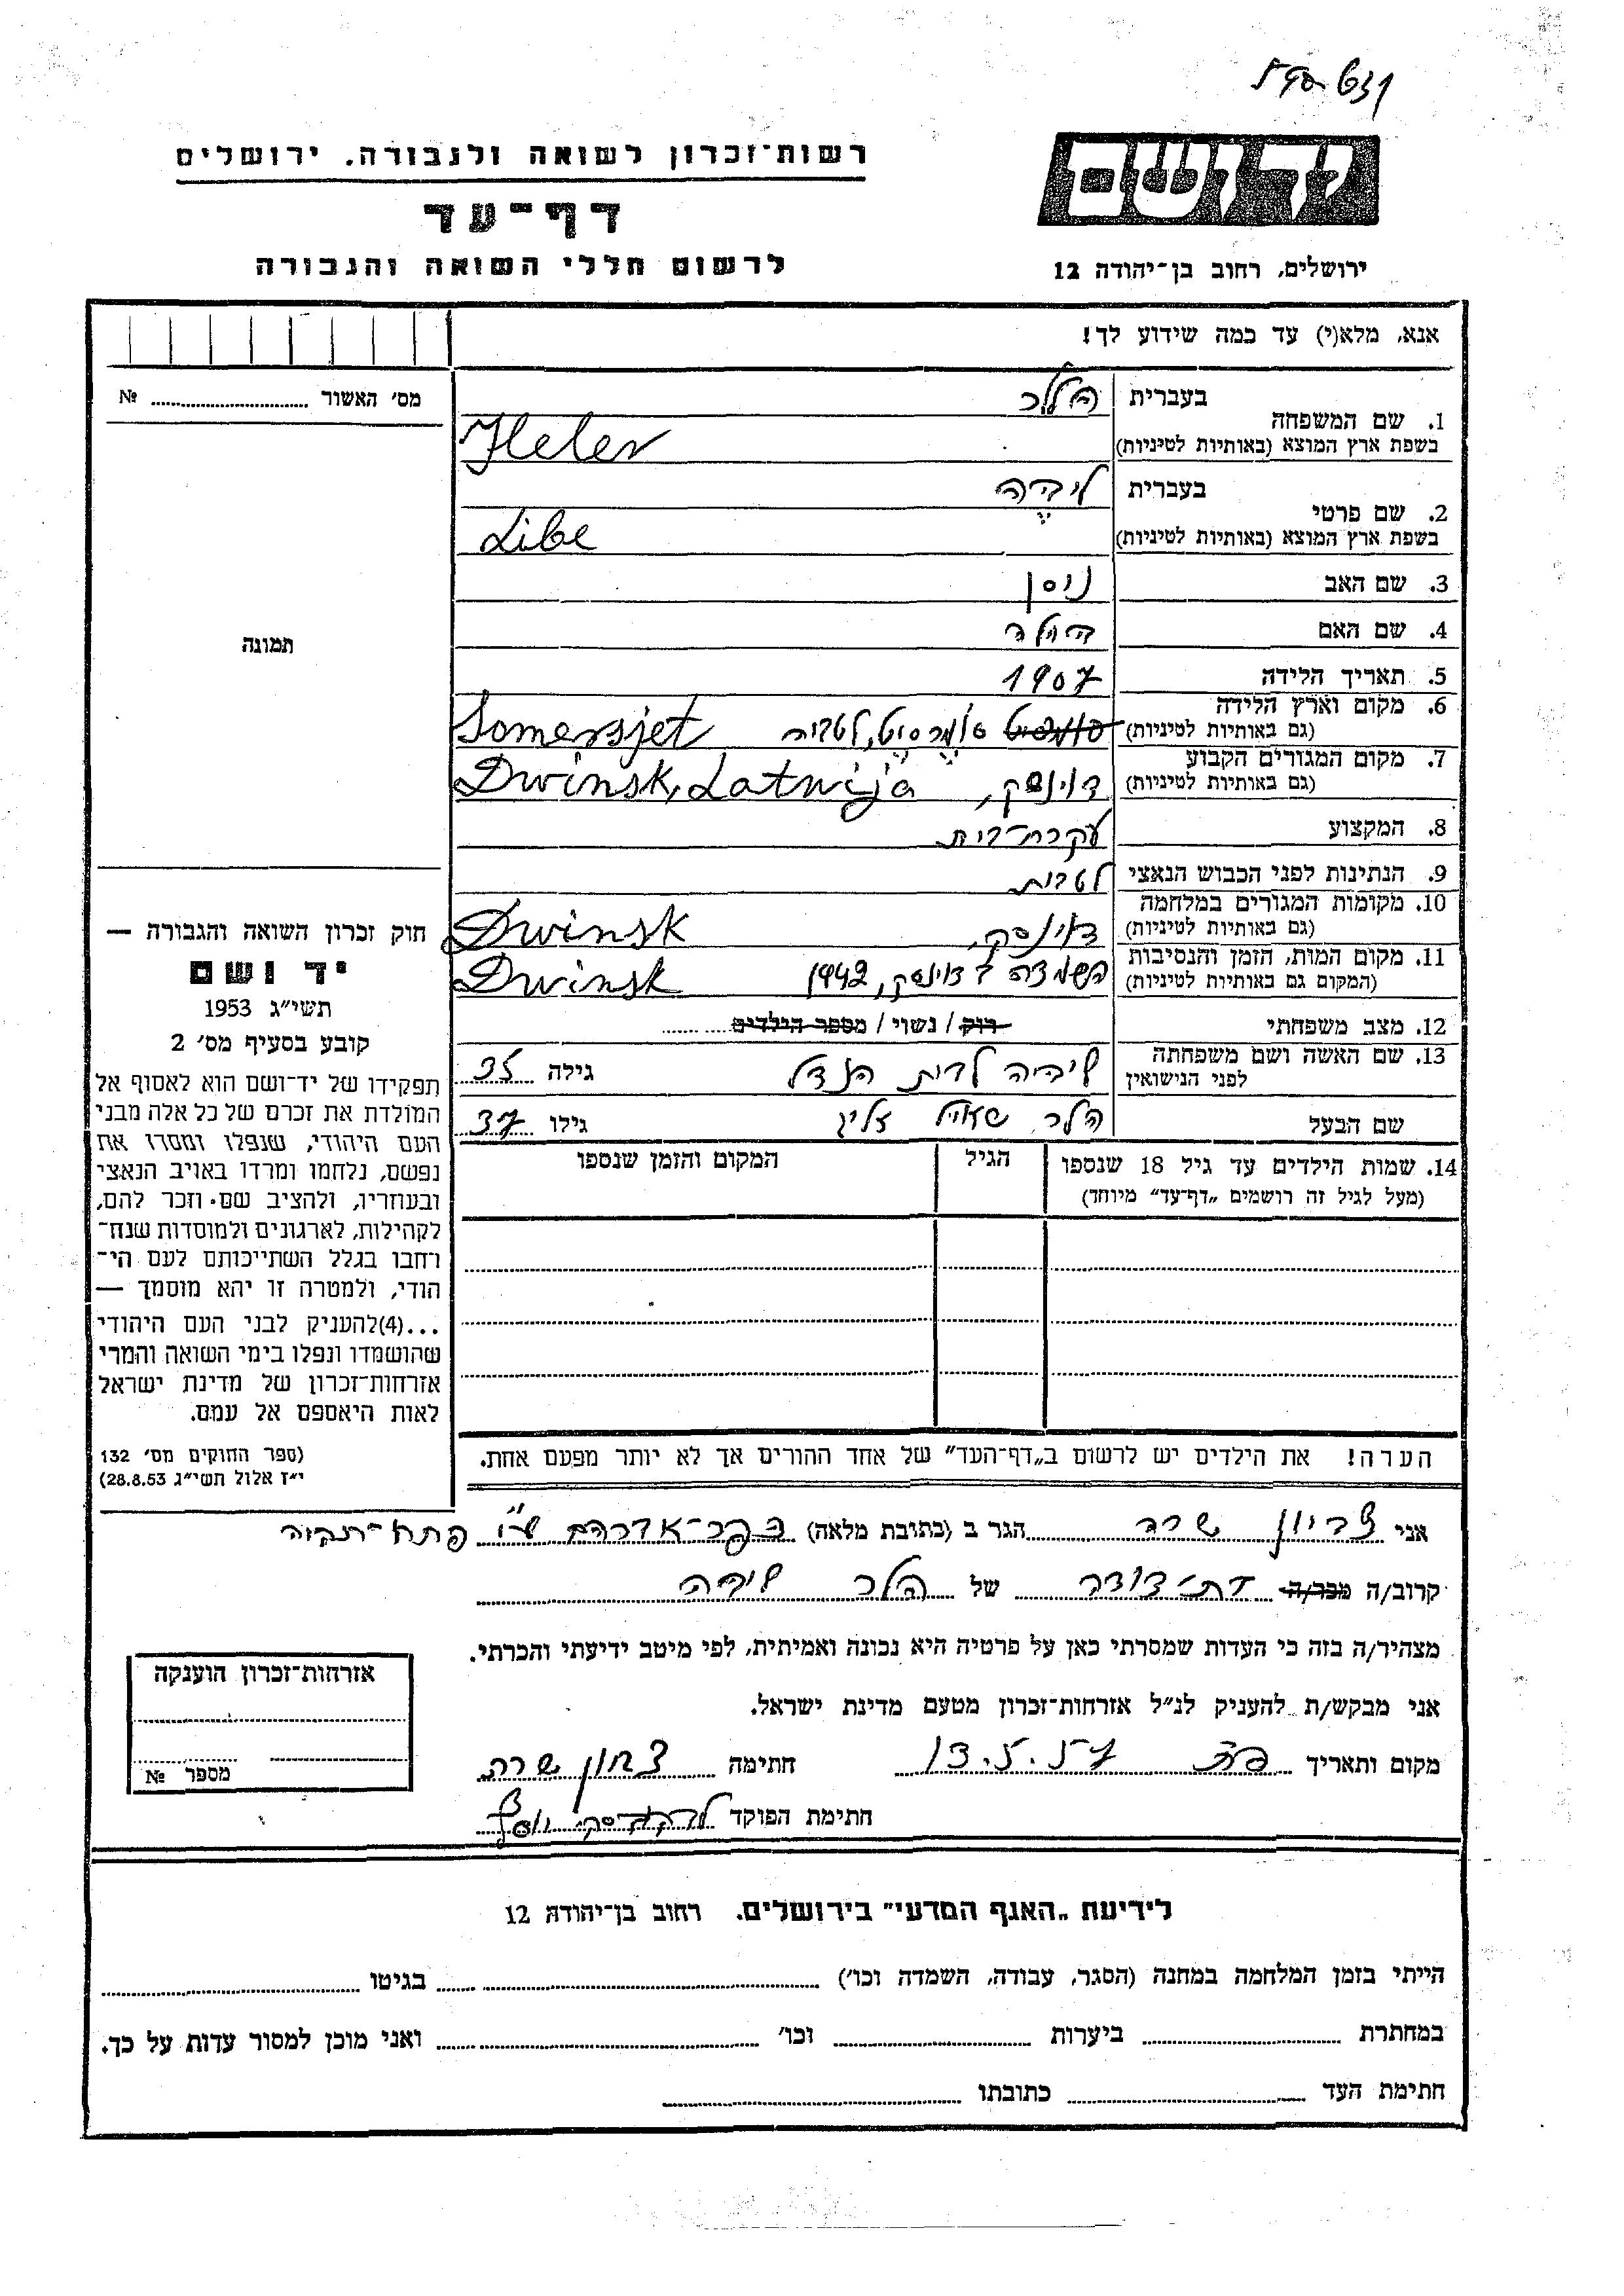 רשות־זכרון לשואה ולגבורה. ירושלים
יד ושם
דף־עד
לרשום חללי השואה והגבורה
ירושלים, רחוב בן־יהודה 12
אנא, מלא(י) עד כמה שידוע לך!
מס׳ האשור № 
1. שם המשפחה
בעברית הלר
בשפת ארץ המוצא (באותיות לטיניות) Heler
2. שם פרטי
בעברית ליבה
בשפת ארץ המוצא (באותיות לטיניות) Libe
3. שם האב ניסן
4. שם האם
תמונה
5. תאריך הלידה 1907
6. מקום וארץ הלידה
(גם באותיות לטיניות) סומרסיט, לטביה Somersjet
7. מקום המגורים הקבוע
(גם באותיות לטיניות) דוינסק, Dwinsk, Latwija
8. המקצוע עקרת־בית
9. הנתינות לפני הכבוש הנאצי לטבית
10. מקומות המגורים במלחמה
(גם באותיות לטיניות) דוינסק, Dwinsk
11. מקום המות, הזמן והנסיבות
(המקום גם באותיות לטיניות) השמדה בדוינסק, 1942 Dwinsk
12. מצב משפחתי רוק / נשוי / מספר הילדים
13. שם האשה ושם משפחתה
לפני הנישואין ליבה לבית הנדל גילה 35
שם הבעל הלר שאול זליג גילו 37
14. שמות הילדים עד גיל 18 שנספו
(מעל לגיל זה רושמים „דף־עד” מיוחד)
הגיל
המקום והזמן שנספו
חוק זכרון השואה והגבורה —
יד ושם
תשי״ג 1953
קובע בסעיף מס׳ 2
תפקידו של יד־ושם הוא לאסוף אל
המולדת את זכרם של כל אלה מבני
העם היהודי, שנפלו ומסרו את
נפשם, נלחמו ומרדו באויב הנאצי
ובעוזריו, ולהציב שם וזכר להם,
לקהילות, לארגונים ולמוסדות שנח־
רבו בגלל השתייכותם לעם הי־
הודי, ולמטרה זו יהא מוסמך —
...(4)להעניק לבני העם היהודי
שהושמדו ונפלו בימי השואה והמרי
אזרחות־זכרון של מדינת ישראל
לאות היאספם אל עמם.
(ספר החוקים מס׳ 132
י״ז אלול תשי״ג 28.8.53)
הערה! את הילדים יש לרשום ב„דף־העד” של אחד ההורים אך לא יותר מפעם אחת.
אני צביון שרה הגר ב (כתובת מלאה) כפר־אברהם פתח־תקוה
קרוב/ה מכר/ה בת־דודה של הלר ליבה
מצהיר/ה בזה כי העדות שמסרתי כאן על פרטיה היא נכונה ואמיתית, לפי מיטב ידיעתי והכרתי.
אני מבקש/ת להעניק לנ״ל אזרחות־זכרון מטעם מדינת ישראל.
מקום ותאריך פ״ת 13.5.57 חתימה צביון שרה
חתימת הפוקד
אזרחות־זכרון הוענקה
מספר №
לידיעת „האגף המדעי” בירושלים. רחוב בן־יהודה 12
הייתי בזמן המלחמה במחנה (הסגר, עבודה, השמדה וכו׳) בגיטו
במחתרת ביערות וכו׳ ואני מוכן למסור עדות על כך.
חתימת העד כתובתו